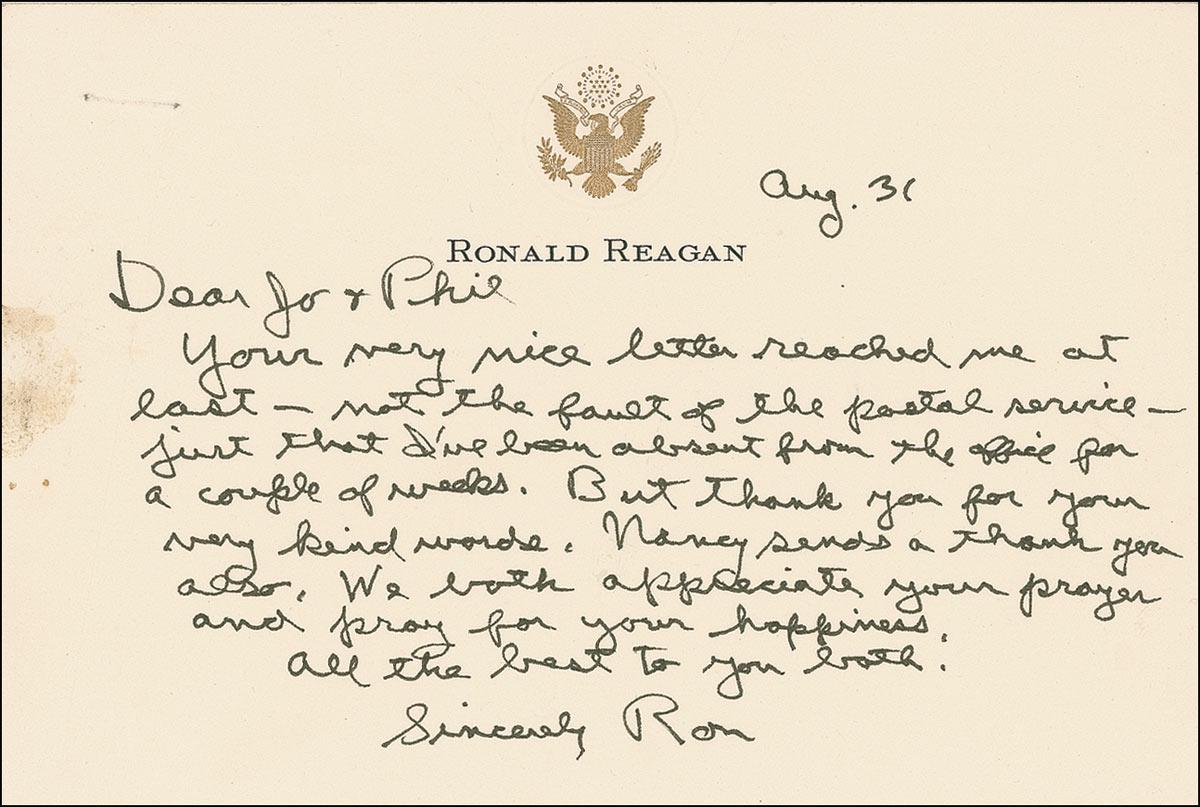 Aug. 31
RONALD REAGAN
Dear Jo & Phil
Your very nice letter reached me at
last – not the fault of the postal service –
just that I've been absent from the office for
a couple of weeks. But thank you for your
very kind words. Nancy sends a thank you
also. We both appreciate your prayer
and pray for your happiness.
All the best to you both.
Sincerely Ron